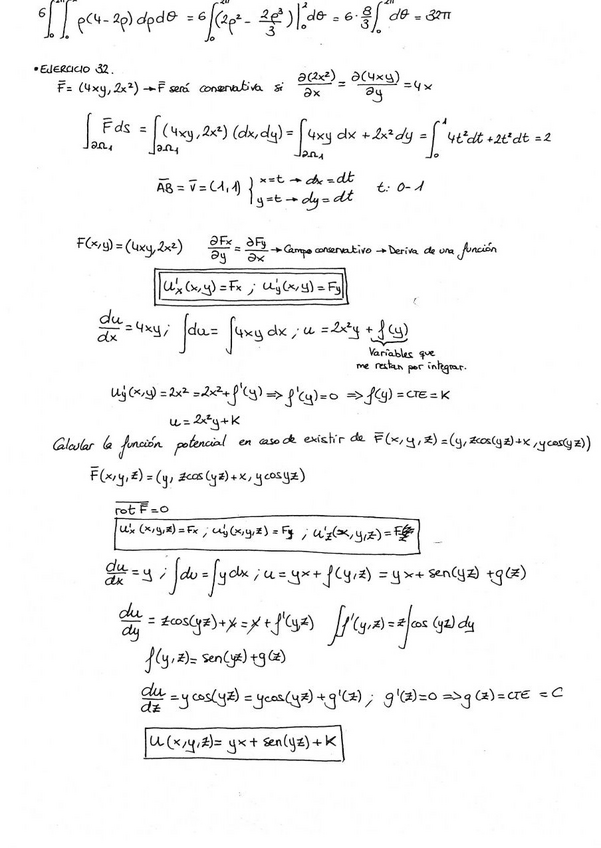 6∫∫ρ(4-2ρ)dρdθ = 6∫(2ρ² - 2ρ³/3)|₀² dθ = 6·8/3∫₀ dθ = 32π
• EJERCICIO 32.
F̄ = (4xy, 2x²) → F̄ será conservativa si ∂(2x²)/∂x = ∂(4xy)/∂y = 4x
∫_∂Ω₁ F̄ds = ∫_∂Ω₁ (4xy, 2x²)(dx,dy) = ∫_∂Ω₁ 4xy dx + 2x² dy = ∫₀¹ 4t²dt + 2t²dt = 2
AB = v̄ = (1,1) { x=t → dx=dt
y=t → dy=dt t: 0-1
F(x,y) = (4xy, 2x²) ∂Fx/∂y = ∂Fy/∂x → Campo conservativo → Deriva de una función
U'x(x,y) = Fx ; U'y(x,y) = Fy
du/dx = 4xy ; ∫du = ∫4xy dx ; u = 2x²y + f(y)
Variables que
me restan por integrar.
U'y(x,y) = 2x² = 2x² + f'(y) ⇒ f'(y) = 0 ⇒ f(y) = CTE = K
u = 2x²y + K
Calcular la función potencial en caso de existir de F̄(x,y,z) = (y, zcos(yz)+x, ycos(yz))
F̄(x,y,z) = (y, zcos(yz)+x, ycosyz)
rot F̄ = 0
U'x(x,y,z) = Fx ; U'y(x,y,z) = Fy ; U'z(x,y,z) = Fz
du/dx = y ; ∫du = ∫ydx ; u = yx + f(y,z) = yx + sen(yz) + g(z)
du/dy = zcos(yz) + x = x + f'(y,z) ∫f'(y,z) = z∫cos(yz)dy
f(y,z) = sen(yz) + g(z)
du/dz = ycos(yz) = ycos(yz) + g'(z) ; g'(z) = 0 ⇒ g(z) = CTE = C
U(x,y,z) = yx + sen(yz) + K